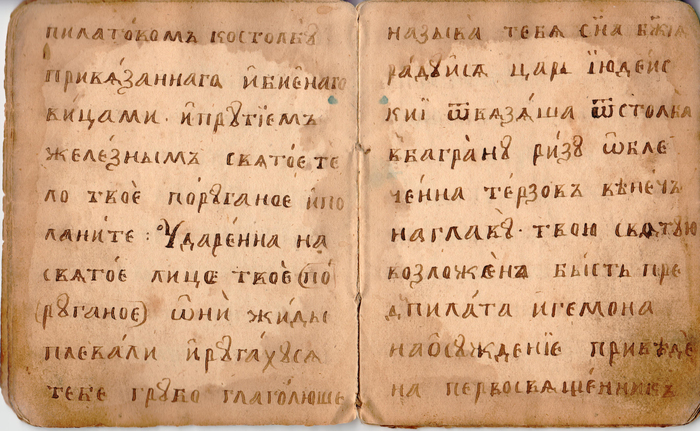 пилатовомъ костолбꙋ
привѧ́занного и҆бие́наго
ви́цами. и҆прꙋ́тїемъ
желе́знымъ свято́е те
ло твоѐ порꙋ́ганое и҆по
лани́те: Ударе́нна на
свято́е лице твоѐ (по́
(рꙋганое) ѡ҆нѝ жи́ды
плева́ли и҆рꙋга́хꙋся
тебѐ грꙋ́бо глаго́люще
называ̀ тебѧ̀ сн҃а бж҃їѧ
ра́дꙋйсѧ царь і҆юдейс
киї ѿвязѧ́ша ѿстолпа̀
вбагрѧ́нꙋ ри́зꙋ ѡ҆бле
че́нна те́рзовъ вѣне́чъ
наглавꙋ̀. твою̀ святꙋ́ю
возложе́нъ бы́сть пре
дпила́та и҆гемона
нао҆сꙋжде́нїе приведѐ
на первосвяще́нникъ